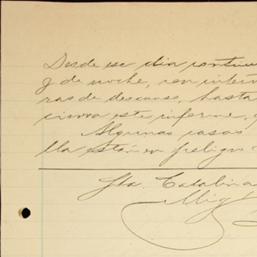 Desde ese dia continu
y de noche, con inter
ras de descanso, hasta
cirnos este informe,
Algunas casas
lla están en peligro
Sta. Catalina
Mig